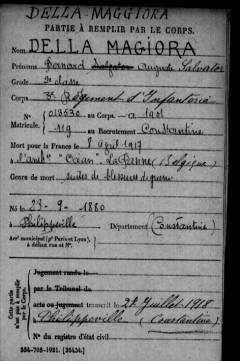 DELLA-MAGGIORA
PARTIE À REMPLIR PAR LE CORPS.
Nom DELLA MAGIORA
Prénoms Bernard Auguste Salvator
2e classe
Corps 3e Régiment d'Infanterie
N° au Corps. — a 1901
Matricule. 119 au Recrutement Constantine
Mort pour la France le 8 avril 1917
à l'amb. "Océan" La Panne (Belgique)
Genre de mort suites de blessures de guerre
Né le 28-9-1880
à Philippeville Département (Constantine)
Arr¹ municipal (pʳ Paris et Lyon),
à défaut rue et N°.
Cette partie n'est pas à remplir par le Corps.
Jugement rendu le
par le Tribunal de
acte ou jugement transcrit le 24 Juillet 1918
à Philippeville (Constantine)
N° du registre d'état civil
534-708-1921. [26434.]